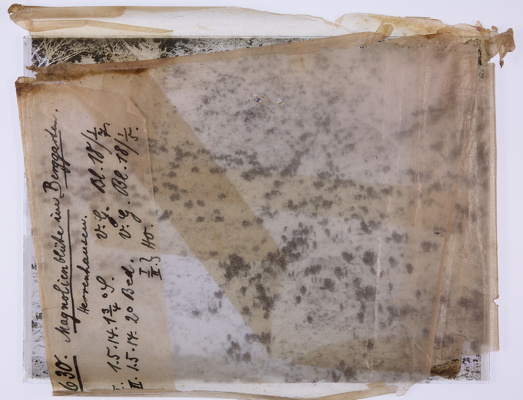 630. Magnolienblüte im Berggarten.
Herrenhausen.
I. 1.5.14. 1 3/4 v. G. Bl. 18 1/2
II. 1.5.14. 20 Bed. v. G. Bl. 18 1/5.
I II } Ho.